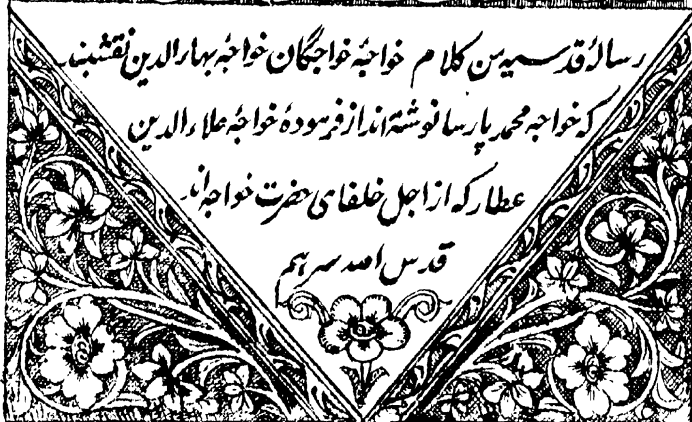 رسالهٔ قدسیه من کلام خواجهٔ خواجگان خواجهٔ بهاءالدین نقشبند
که خواجه محمد پارسا نوشته اند از فرمودهٔ خواجهٔ علاءالدین
عطار که از اجل خلفای حضرت خواجه اند
قدس الله سرهم